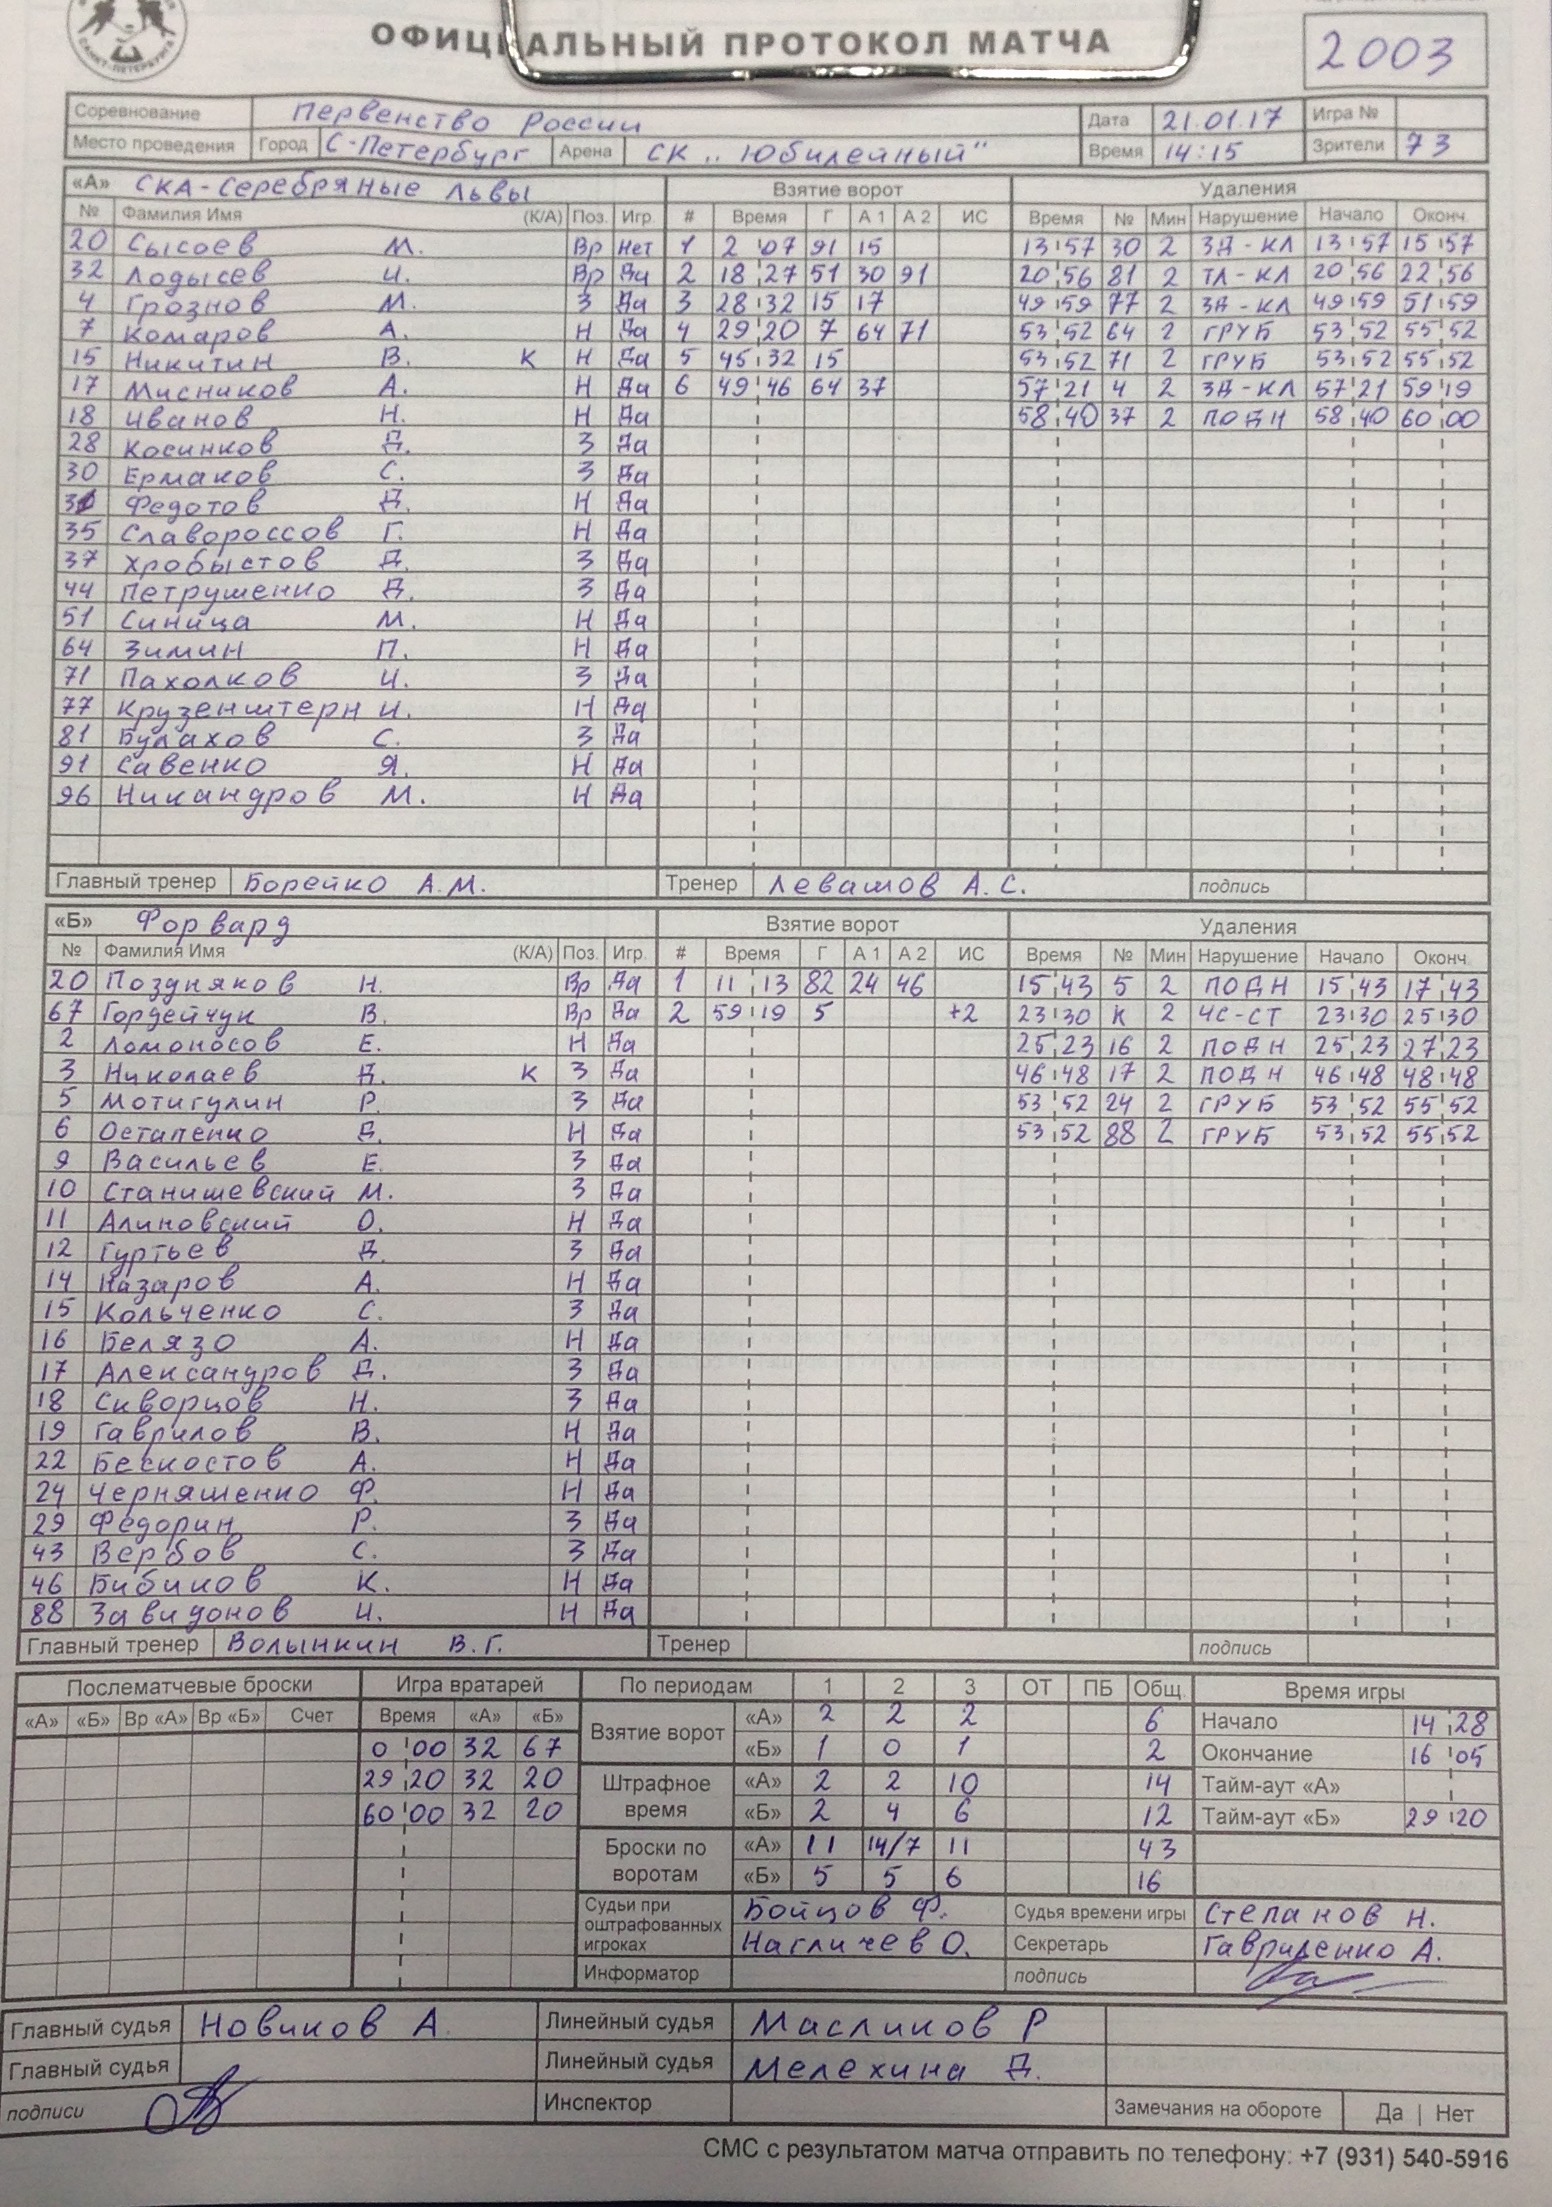 САНКТ-ПЕТЕРБУРГ
ОФИЦИАЛЬНЫЙ ПРОТОКОЛ МАТЧА
2003
Соревнование Первенство России Дата 21.01.17 Игра №
Место проведения Город С-Петербург Арена СК „Юбилейный" Время 14:15 Зрители 73
«А» СКА-Серебряные Львы Взятие ворот Удаления
№ Фамилия Имя (К/А) Поз. Игр. # Время Г А 1 А 2 ИС Время № Мин Нарушение Начало Оконч.
20 Сысоев М. Вр Нет 1 2 07 91 15 13 57 30 2 ЗД-КЛ 13 57 15 57
32 Лодысев И. Вр Да 2 18 27 51 30 91 20 56 81 2 ТЛ-КЛ 20 56 22 56
4 Грознов М. З Да 3 28 32 15 17 49 59 77 2 ЗД-КЛ 49 59 51 59
7 Комаров А. Н Да 4 29 20 7 64 71 53 52 64 2 ГРУБ 53 52 55 52
15 Никитин В. К Н Да 5 45 32 15 53 52 71 2 ГРУБ 53 52 55 52
17 Мисников А. Н Да 6 49 46 64 37 57 21 4 2 ЗД-КЛ 57 21 59 19
18 Иванов Н. Н Да 58 40 37 2 ПОДН 58 40 60 00
28 Косинков Д. З Да
30 Ермаков С. З Да
31 Федотов Д. Н Да
35 Славороссов Г. Н Да
37 Хробыстов Д. З Да
44 Петрушенко Д. З Да
51 Синица М. Н Да
64 Зимин П. Н Да
71 Пахолков И. З Да
77 Крузенштерн И. Н Да
81 Булахов С. З Да
91 Савенко Я. Н Да
96 Никандров М. Н Да
Главный тренер Борейко А.М. Тренер Левашов А.С. подпись
«Б» Форвард Взятие ворот Удаления
№ Фамилия Имя (К/А) Поз. Игр. # Время Г А 1 А 2 ИС Время № Мин Нарушение Начало Оконч.
20 Поздняков Н. Вр Да 1 11 13 82 24 46 15 43 5 2 ПОДН 15 43 17 43
67 Гордейчук В. Вр Да 2 59 19 5 +2 23 30 К 2 ЧС-СТ 23 30 25 30
2 Ломоносов Е. Н Да 25 23 16 2 ПОДН 25 23 27 23
3 Николаев Д. К З Да 46 48 17 2 ПОДН 46 48 48 48
5 Мотигулин Р. З Да 53 52 24 2 ГРУБ 53 52 55 52
6 Остапенко Д. Н Да 53 52 88 2 ГРУБ 53 52 55 52
9 Васильев Е. З Да
10 Станишевский М. З Да
11 Алиновский О. Н Да
12 Гуртьев Д. З Да
14 Назаров А. Н Да
15 Кольченко С. З Да
16 Белязо А. Н Да
17 Александров Д. З Да
18 Скворцов Н. З Да
19 Гаврилов В. Н Да
22 Бескостов А. Н Да
24 Черняшенко Ф. Н Да
29 Федорин Р. З Да
43 Вербов С. З Да
46 Бибиков К. Н Да
88 Завидонов И. Н Да
Главный тренер Волынкин В.Г. Тренер подпись
Послематчевые броски Игра вратарей По периодам 1 2 3 ОТ ПБ Общ. Время игры
«А» «Б» Вр «А» Вр «Б» Счет Время «А» «Б» Взятие ворот «А» 2 2 2 6 Начало 14 28
0 00 32 67 «Б» 1 0 1 2 Окончание 16 05
29 20 32 20 Штрафное время «А» 2 2 10 14 Тайм-аут «А»
60 00 32 20 «Б» 2 4 6 12 Тайм-аут «Б» 29 20
Броски по воротам «А» 11 14/7 11 43
«Б» 5 5 6 16
Судьи при оштрафованных игроках Бойцов Ф. Судья времени игры Степанов Н.
Нагличев О. Секретарь Гавриленко А.
Информатор подпись
Главный судья Новиков А. Линейный судья Масликов Р
Главный судья Линейный судья Мелехина Д.
подписи Инспектор Замечания на обороте Да | Нет
СМС с результатом матча отправить по телефону: +7 (931) 540-5916